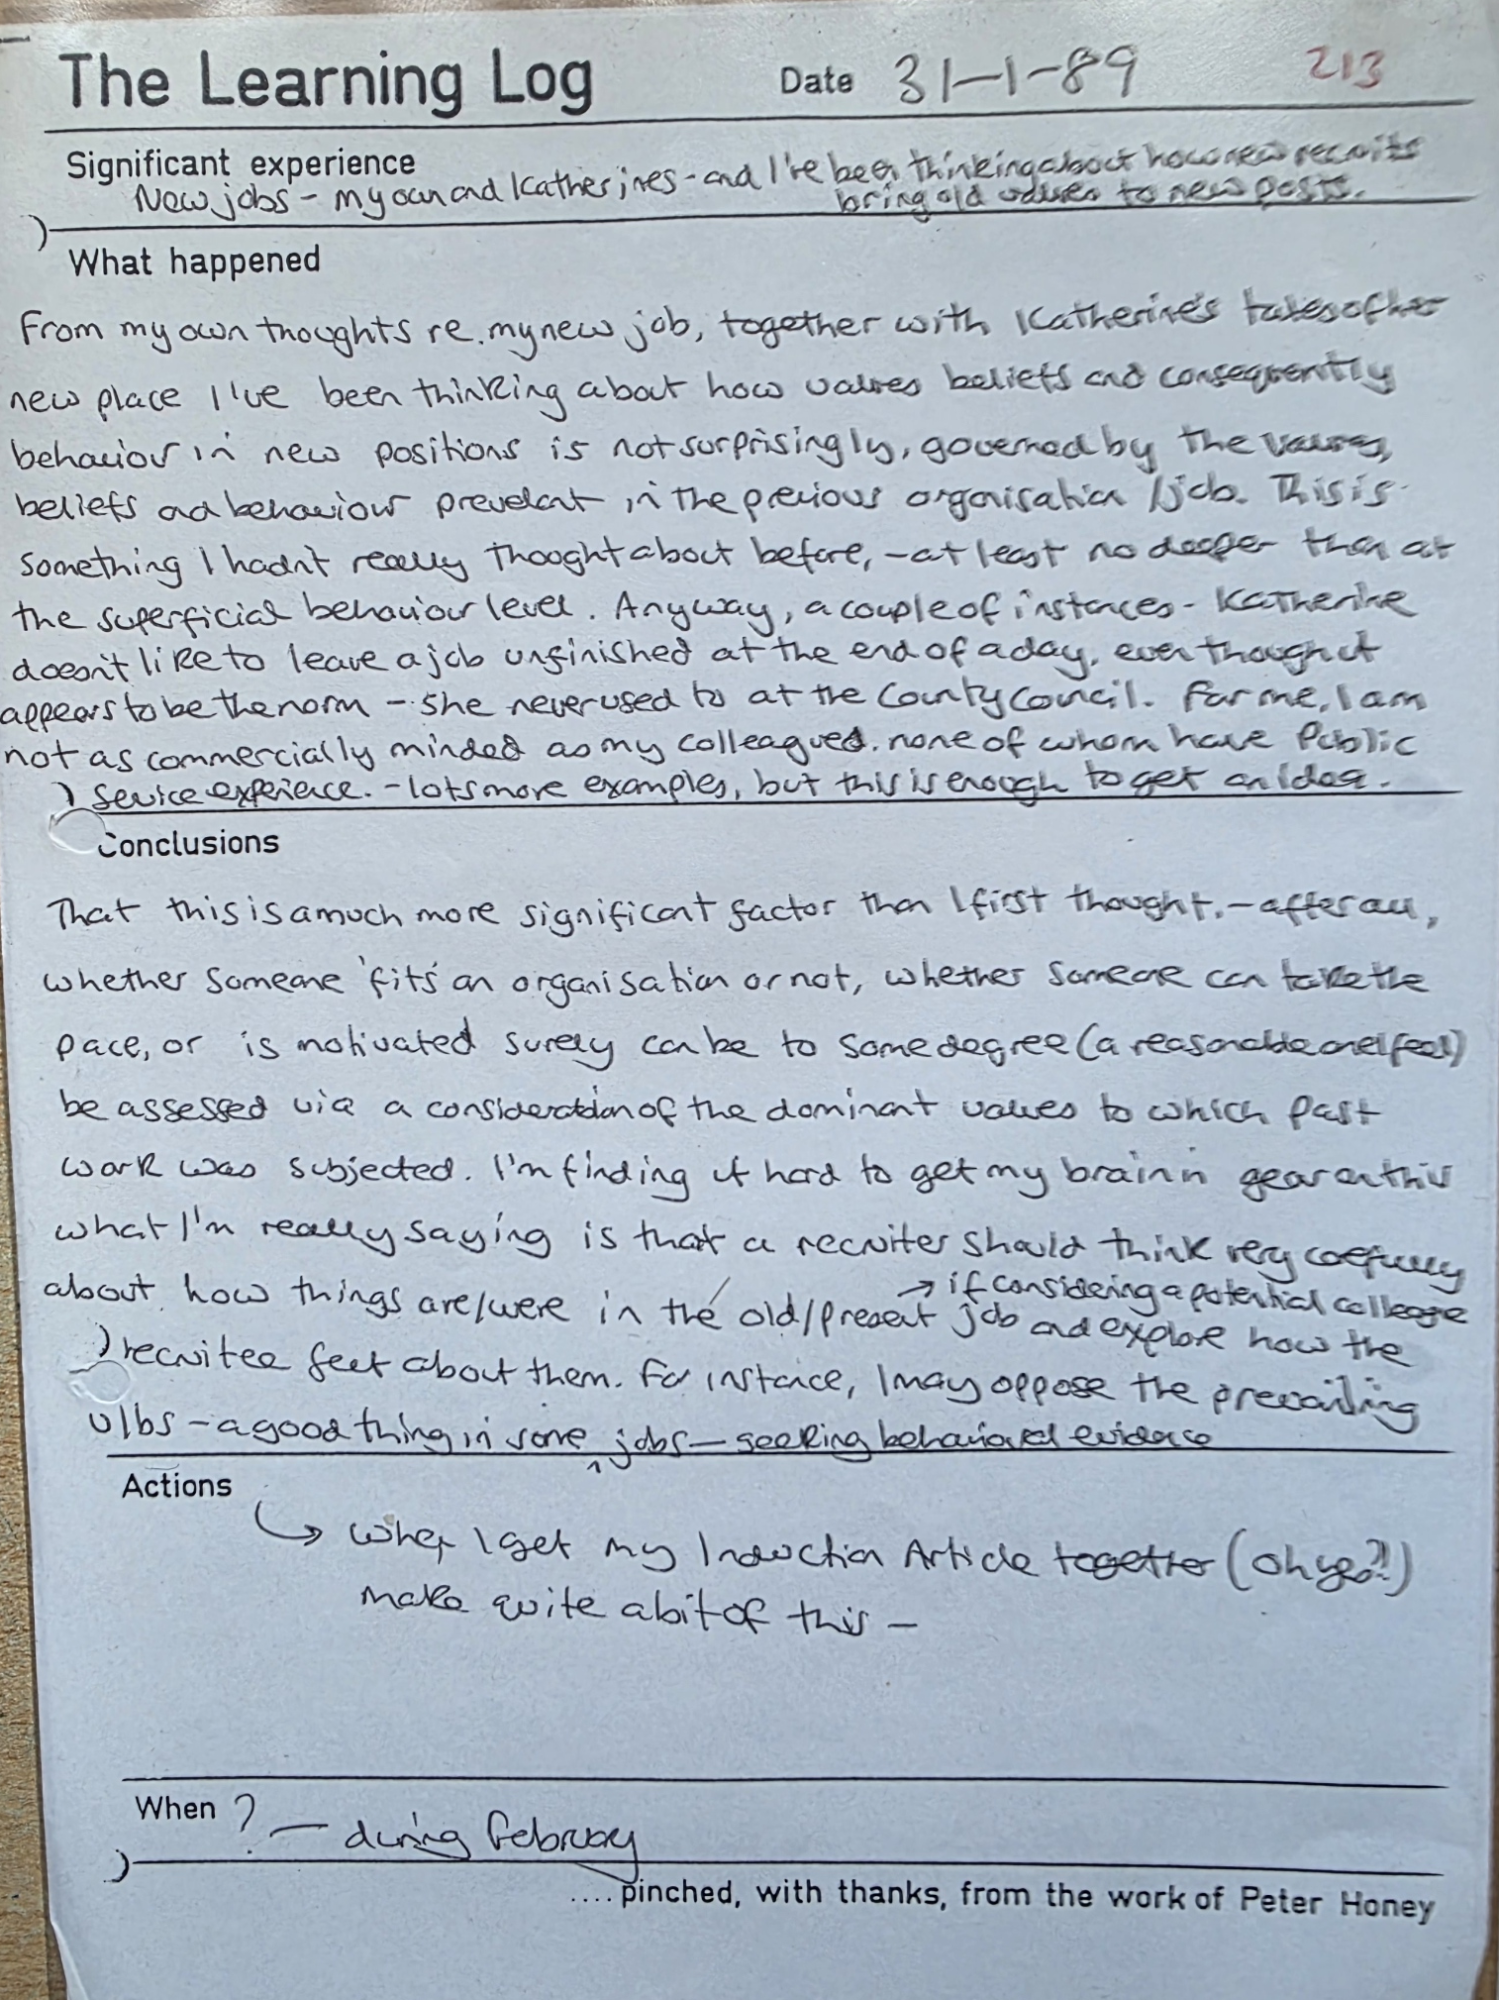 The Learning Log Date 31-1-89 213
Significant experience
New jobs - my own and Katherines - and I've been thinking about how new recruits
bring old values to new posts.
What happened
From my own thoughts re. my new job, together with Katherine's tales of her
new place I've been thinking about how values beliefs and consequently
behaviour in new positions is not surprisingly, governed by the values,
beliefs and behaviour prevelant in the previous organisation / job. This is
something I hadn't really thought about before, - at least no deeper than at
the superficial behaviour level. Anyway, a couple of instances - Katherine
doesn't like to leave a job unfinished at the end of a day, even though it
appears to be the norm - she never used to at the County Council. For me, I am
not as commercially minded as my colleagues. none of whom have Public
Service experience. - lots more examples, but this is enough to get an idea.
Conclusions
That this is a much more significant factor than I first thought, - after all,
whether someone 'fits' an organisation or not, whether someone can take the
pace, or is motivated surely can be to some degree (a reasonable one I feel)
be assessed via a consideration of the dominant values to which past
work was subjected. I'm finding it hard to get my brain in gear on this
what I'm really saying is that a recruiter should think very carefully
about how things are/were in the old/present job and explore how the
→ if considering a potential colleage
recruitee feet about them. For instance, I may oppose the prevailing
vlbs - a good thing in some jobs - seeking behavioural evidence
Actions
↳ When I get my Induction Article together (Oh yes?!)
make quite a bit of this -
When ? - during February
.... pinched, with thanks, from the work of Peter Honey